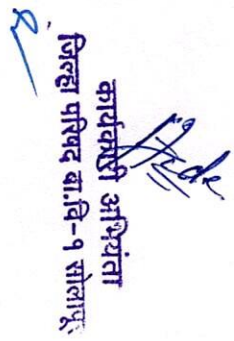 कार्यकारी अभियंता
जिल्हा परिषद बां.वि-१ सोलापूर.